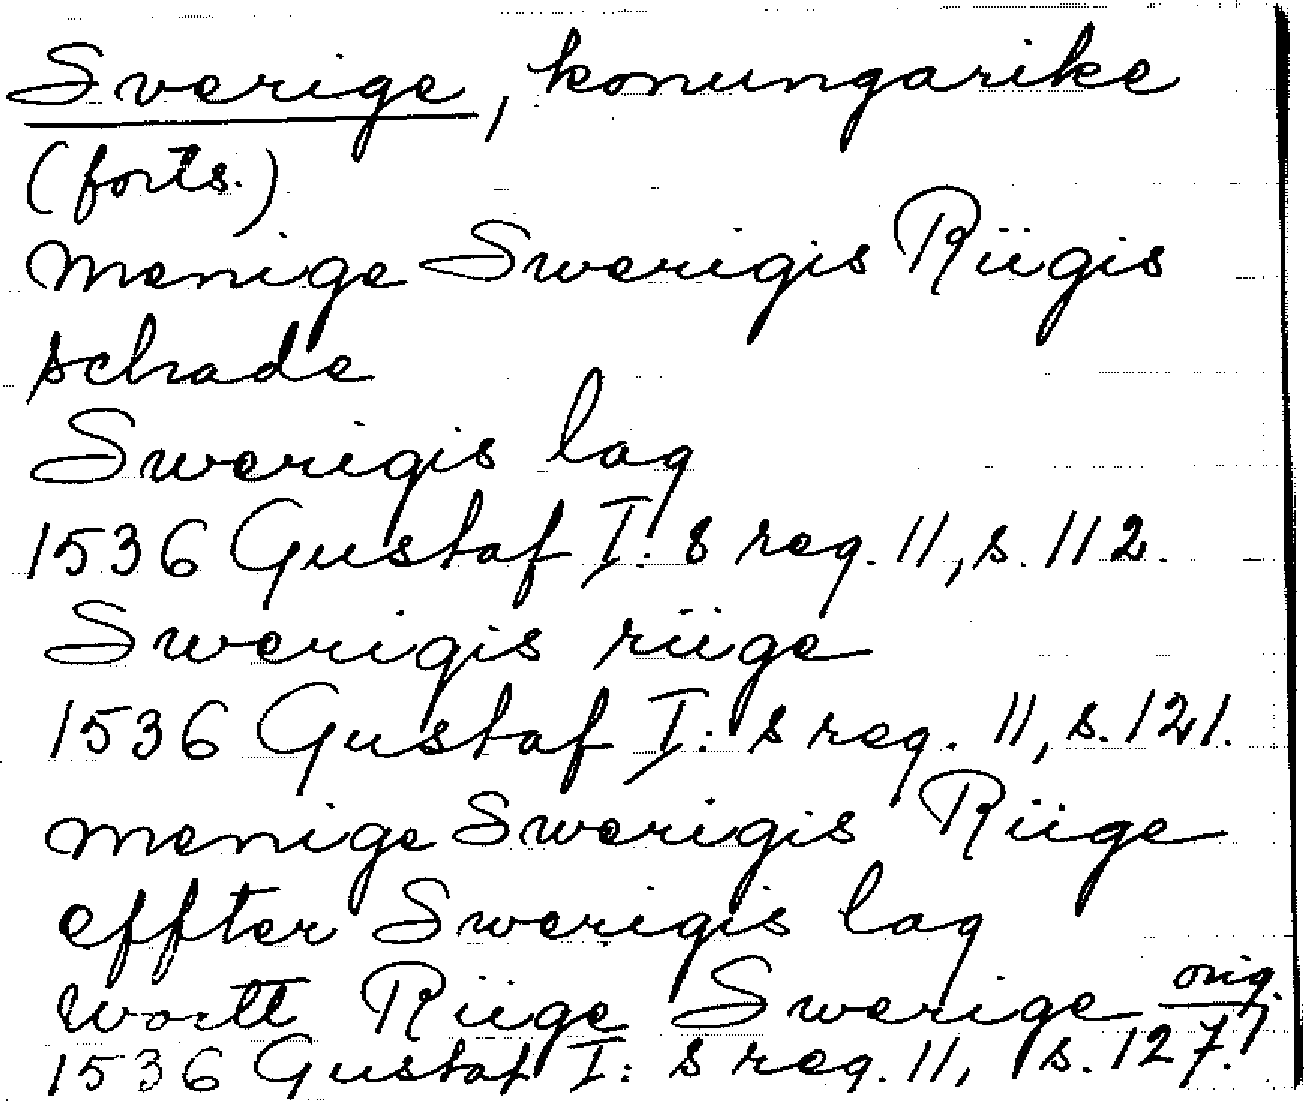 Sverige, konungarike
(forts.)
menige Swerigis Riigis
schade
Swerigis lag
1536 Gustaf I:s reg. 11, s. 112.
Swerigis riige
1536 Gustaf I:s reg. 11, s. 121.
menige Swerigis Riige
effter Swerigis lag
wortt Riige Swerige orig.
1536 Gustaf I:s reg. 11, s. 127.